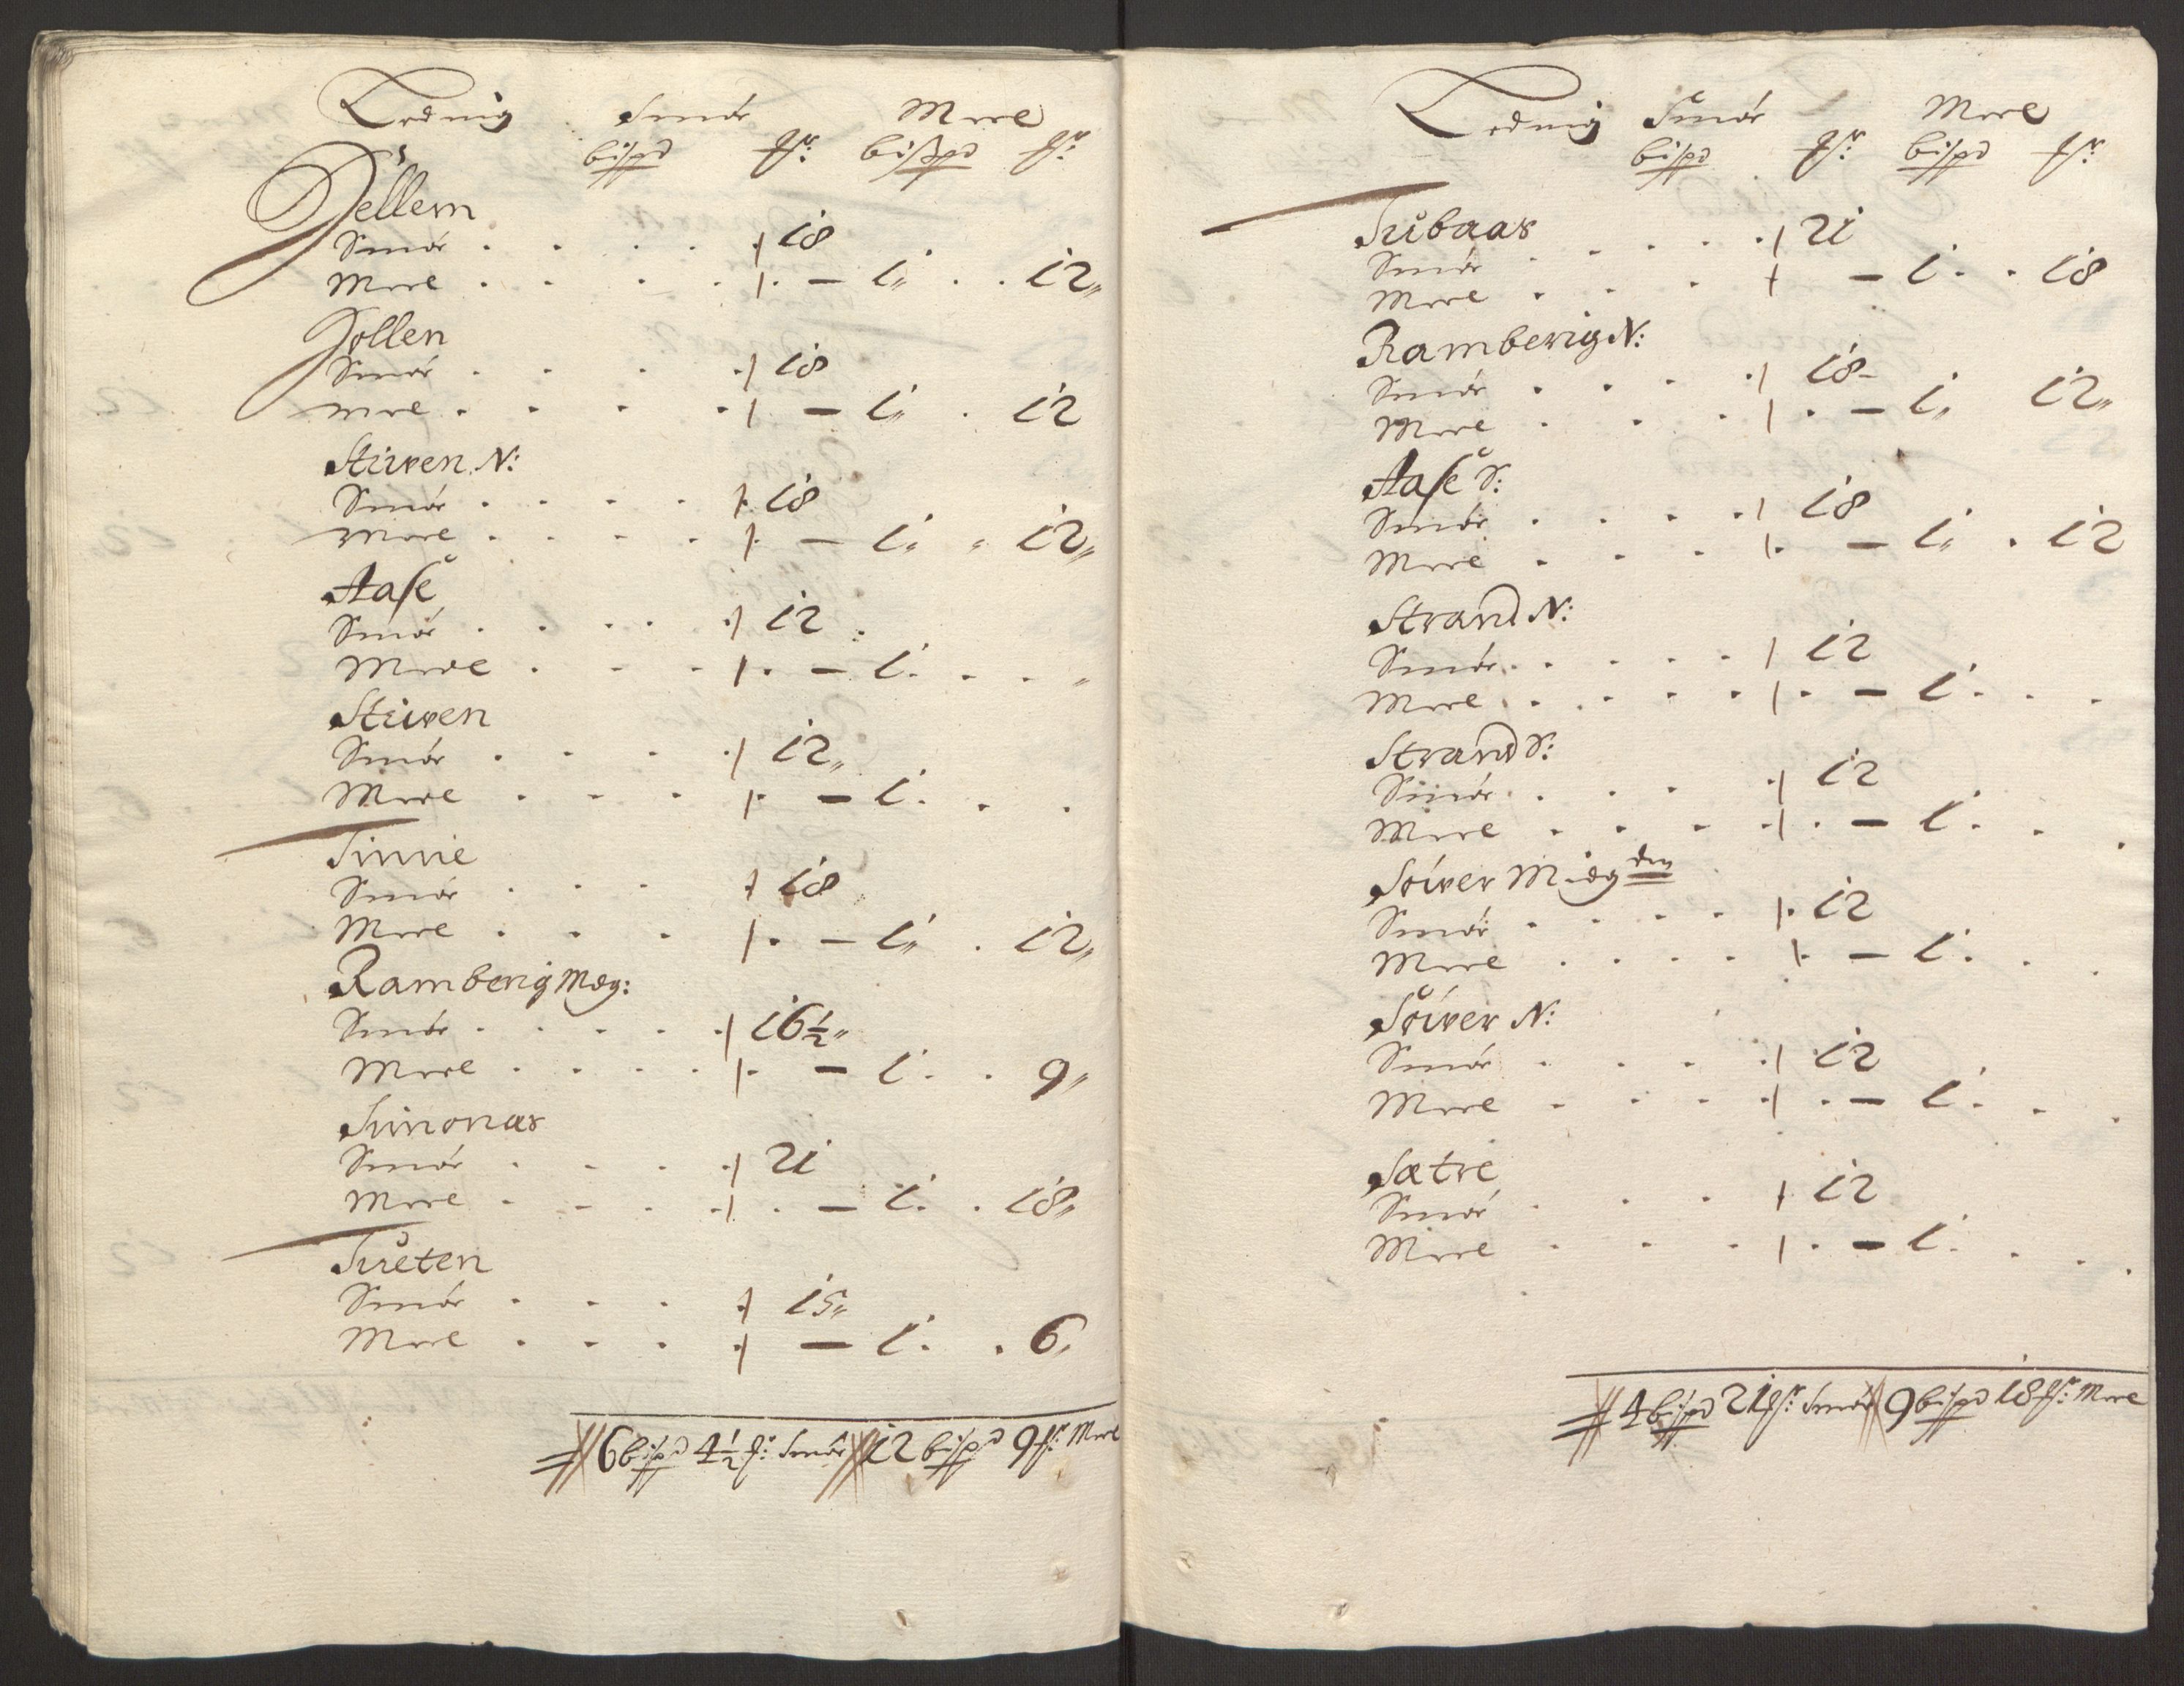 Leding Smör Meel
bispd fr: bispd fr:
Jellem
Smör . . . . 18
Meel . . . . . — 1„ . . 12„
Jollen
Smör . . . . 18
Meel . . . . — 1„ . 12
Stuven N:
Smör . . . . 18
Meel . . . . . — 1„ „ 12„
Aase
Smör . . . . . 12 .
Meel . . . . — 1. . . „
Stuven
Smör . . . . 12„
Meel . . . . — 1. . .
Tinnie
Smör . . . 18
Meel . . . . — 1„ . 12„
Ramberig Mdg:
Smör . . . . . 16½„
Meel . . . . . — 1. . 9„
Simonas
Smör . . . . 21
Meel . . . . . — 1. . 18„
Tueten
Smör . . . . 15„
Meel . . . . — 1. . 6„
6 bispd 4½ fr: Smör 12 bispd 9 fr: Meel
Leding Smör Meel
bispd fr: bispd fr:
Tubaas
Smör . . . . . 21
Meel . . . — 1. . 18
Ramberig N:
Smör . . . . . 18-
Meel . . . . — 1„ 12„
Aase S:
Smör . . . . . 18
Meel . . . . — 1„ . 12
Strand N:
Smör . . . . . 12
Meel . . . . . . — 1. . .
Strand S:
Smör . . . . 12
Meel . . . . . — 1. . .
Söiver Midg den
Smör . . . . . 12
Meel . . . . . — 1. . .
Söiver N:
Smör . . . . 12
Meel . . . . . — 1. . .
Sætre
Smör . . . 12
Meel . . . . — 1. . . .
4 bispd 21 fr: Smör 9 bispd 18 fr: Meel